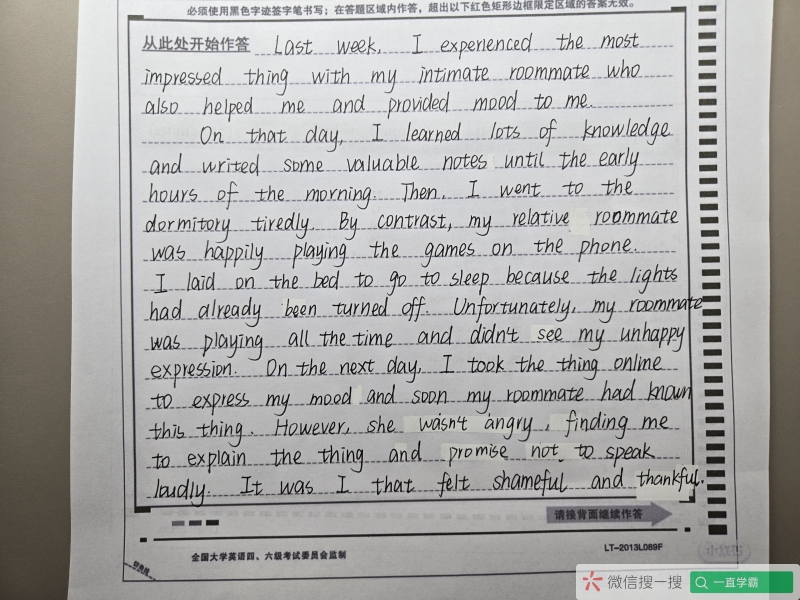 必须使用黑色字迹签字笔书写；在答题区域内作答，超出以下红色矩形边框限定区域的答案无效。
从此处开始作答 Last week, I experienced the most
impressed thing with my intimate roommate who
also helped me and provided mood to me.
On that day, I learned lots of knowledge
and writed some valuable notes until the early
hours of the morning. Then, I went to the
dormitory tiredly. By contrast, my relative roommate
was happily playing the games on the phone.
I laid on the bed to go to sleep because the lights
had already been turned off. Unfortunately, my roommate
was playing all the time and didn't see my unhappy
expression. On the next day, I took the thing online
to express my mood and soon my roommate had known
this thing. However, she wasn't angry, finding me
to explain the thing and promise not to speak
loudly. It was I that felt shameful and thankful.
请接背面继续作答
全国大学英语四、六级考试委员会监制
LT-2013L089F
微信搜一搜 一直学霸